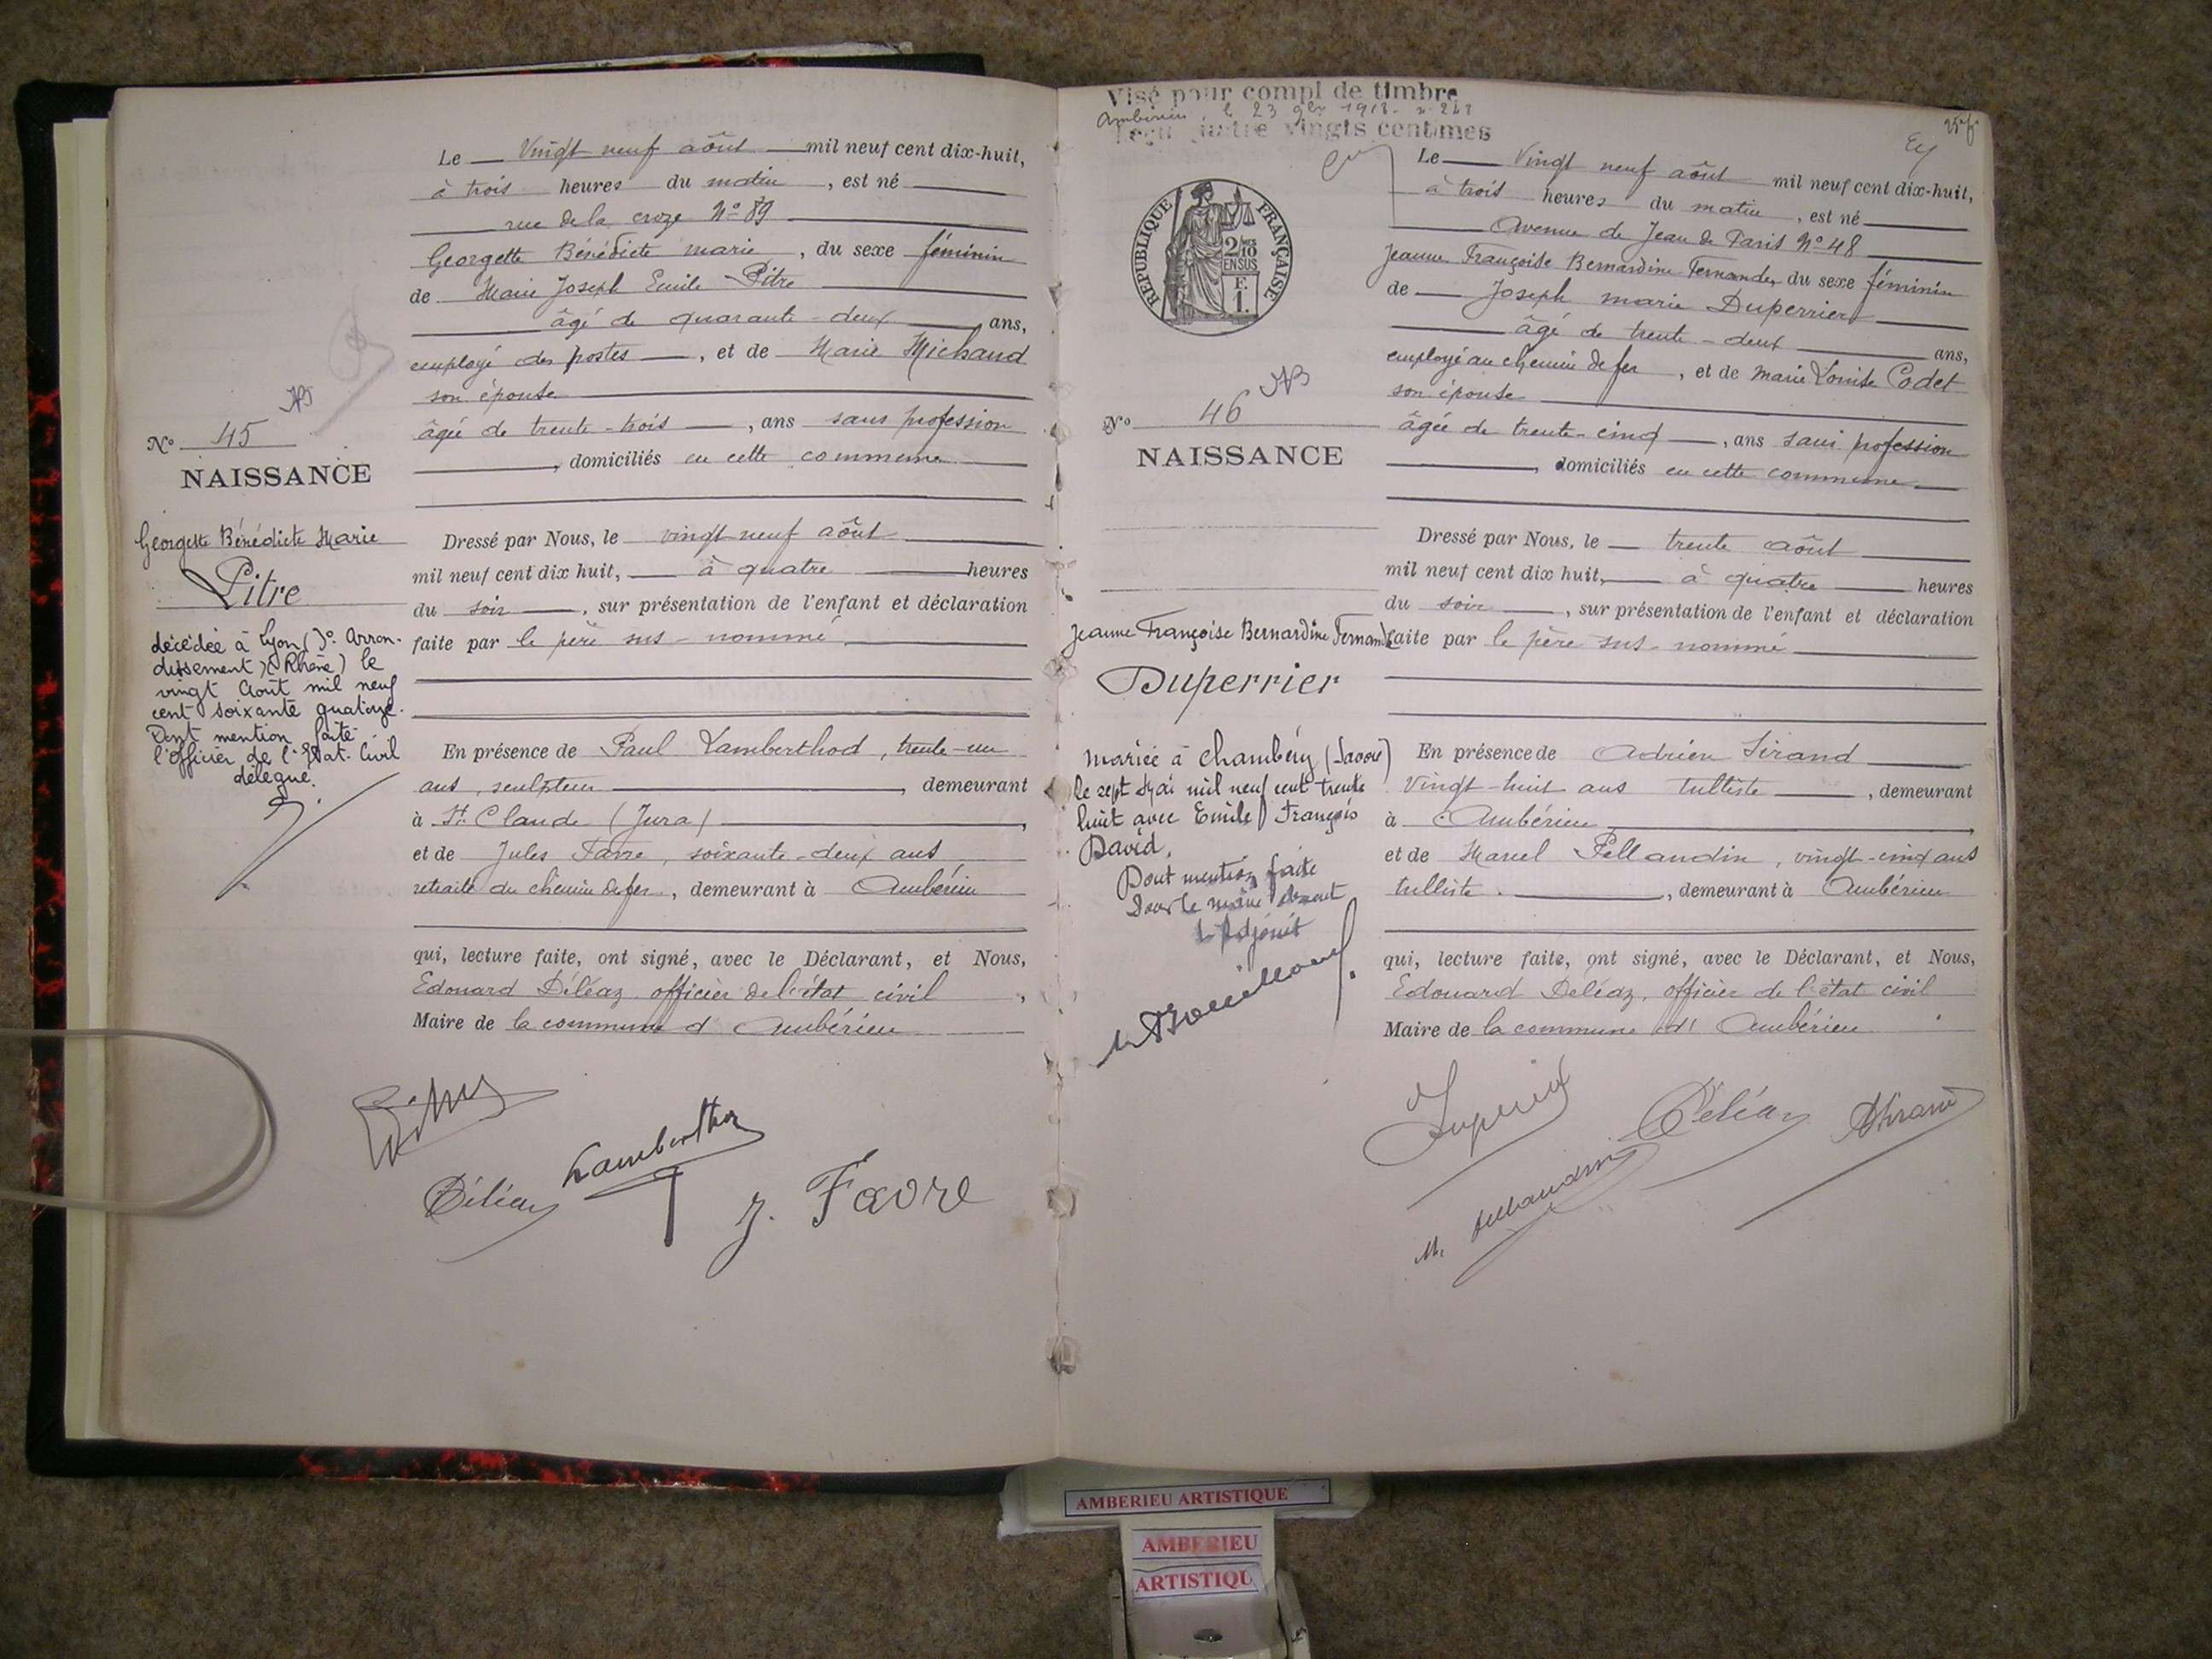 Le Vingt neuf août mil neuf cent dix-huit,
à trois heures du matin, est né
rue de la croze N° 89
Georgette Bénédicte marie, du sexe féminin
de Marie Joseph Emile Pitre
âgé de quarante-deux ans,
employé des postes, et de Marie Michaud
son épouse
âgée de trente-trois, ans sans profession
, domiciliés en cette commune
N° 45
NAISSANCE
Georgette Bénédicte Marie
Pitre
décédée à Lyon (3°. Arron-
dissement) (Rhône) le
vingt Août mil neuf
cent soixante quatorze.
Dont mention faite
l'Officier de l'Etat-Civil
délégué.
Dressé par Nous, le vingt neuf août
mil neuf cent dix huit, à quatre heures
du soir, sur présentation de l'enfant et déclaration
faite par le père sus-nommé
En présence de Paul Lamberthod, trente-un
ans, sculpteur, demeurant
à St Claude (Jura),
et de Jules Favre, soixante-deux ans
retraité du chemin de fer, demeurant à Ambérieu
qui, lecture faite, ont signé, avec le Déclarant, et Nous,
Edouard Déléaz officier de l'état civil,
Maire de la commune d'Ambérieu
Pitre
Lamberthod
Déléaz
J. Favre
Visé pour compl de timbre
Ambérieu, le 23 9bre 1918
Reçu quatre vingts centimes
25 f.
RÉPUBLIQUE FRANÇAISE
2/10
EN SUS
F.
1.
Le Vingt neuf août mil neuf cent dix-huit,
à trois heures du matin, est né
Avenue de Jean de Paris N° 48
Jeanne Françoise Bernardine Fernande, du sexe féminin
de Joseph marie Duperrier
âgé de trente-deux ans,
employé au chemin de fer, et de Marie Louise Codet
son épouse
âgée de trente-cinq, ans sans profession
, domiciliés en cette commune
N° 46
NAISSANCE
Jeanne Françoise Bernardine Fernande
Duperrier
Mariée à Chambéry (Savoie)
le sept Mai mil neuf cent trente
huit avec Emile François
David.
Dont mention faite
L'Adjoint
Dressé par Nous, le trente août
mil neuf cent dix huit, à quatre heures
du soir, sur présentation de l'enfant et déclaration
faite par le père sus-nommé
En présence de Adrien Sirand
Vingt-huit ans tulliste, demeurant
à Ambérieu
et de Marcel Pellandin, vingt-cinq ans
tulliste, demeurant à Ambérieu
qui, lecture faite, ont signé, avec le Déclarant, et Nous,
Edouard Déléaz, officier de l'état civil
Maire de la commune d'Ambérieu
Duperrier
Déléaz
ASirand
M. Pellandin
AMBERIEU ARTISTIQUE
AMBERIEU
ARTISTIQU